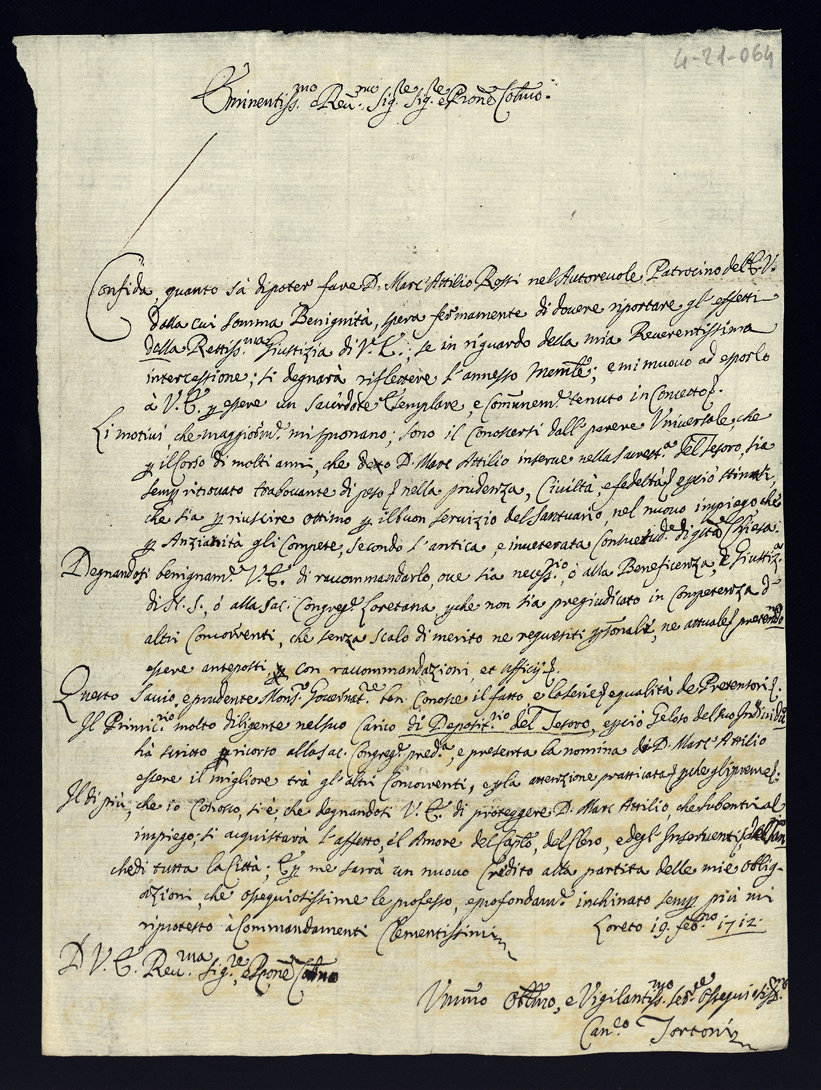 4-21-064
Eminentiss.mo e Reu.mo Sig.re Sig.re e Prone Colmo:
Confida quanto sà di poter fare D. Marc'Attilio Rossi nel Autoreuole Patrocino del E. V.
Dalla cui somma Benignità, spera fermamente di douere riportare gl'effetti
della Rettiss.ma Giustizia di V. E.; se in riguardo della mia Reuerentissima
intercessione; si degnarà riflettere l'annesso Memle; e mi muouo ad esporlo
à V. E. p essere un Sacerdote Esemplare, e Comunem.e tenuto in Concetto.
Li motiui, che maggiorm.e mi spronano; sono il Conoscersi dall parere Uniuersale, che
p il Corso di molti anni, che detto D. Marc Attilio interue nella Sacrest.a del Tesoro, sia
semp ritrouato trabocante di peso nella prudenza, Ciuiltà, e fedeltà e p ciò stimati,
che sia p riuscire ottimo p il buon seruizio del Santuario nel nuouo impiego che
p Anzianità gli Compete, secondo l'antica, e inueterata Consuetud.e di q.ta Chiesa.
Degnandosi benignam.e V. E. di raccommandarlo, oue sia necess.rio, ò alla Beneficenza, e Giustiz.a
di N. S., ò alla Sac. Congreg.e Loretana, p che non sia pregiudicato in Competenza d
altri Concorrenti, che senza scalo di merito ne requesiti p sonali, ne attuale pretendono
essere anteposti con raccommandazioni, et ufficij.
Questo Sauio, e prudente Mons.r Gouernat.re ben Conosce il fatto e la serie e qualità de Pretensori.
Il Primic.rio molto diligente nel suo Carico di Deposit.rio del Tesoro, e p ciò Geloso del suo
hà scritto p ricorso alla Sac. Congreg.e pred.a, e presenta la nomina di D. Marc Attilio
essere il migliore trà gl'altri Concorrenti, e p la attenzione pratticata p che gli preme.
Il di più, che io Conosco, si è, che degnandosi V. E. di proteggere D. Marc Attilio, che subentri al
impiego, si acquistarà l'affetto, el Amore del Caplo, del Clero, e degl'Inseruenti,
che di tutta la Città; E p me sarrà un nuouo Credito alla partita delle mie oblig-
azioni, che osequiosissime le professo, e profondam.e inchinato semp più mi
riprotesto à Commandamenti Clementissimi Loreto 19. feb.ro 1712.
D V. E. Reu.ma Sig.re, e Prone Colmo
Ummo Obblmo, e Vigilantiss.mo Ser.re Ossequiosiss.mo
Can.co Tortoni